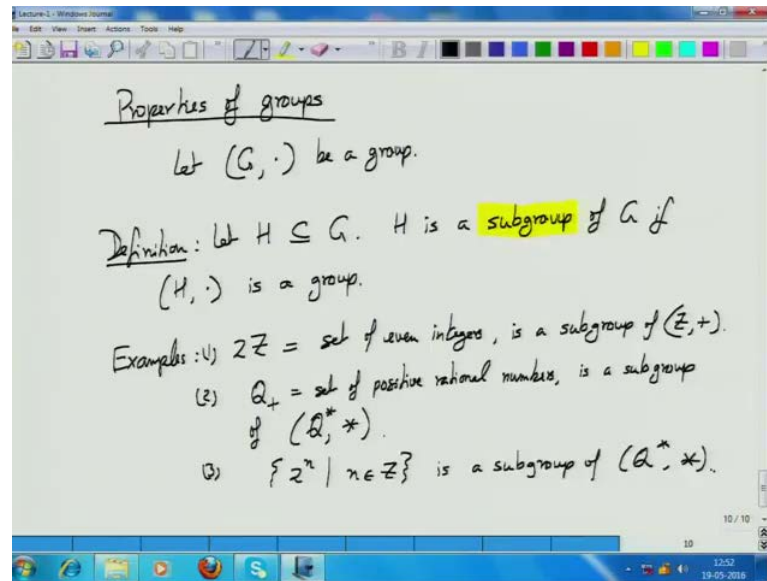 Lecture-1 - Windows Journal
Edit View Insert Actions Tools Help
Properties of groups
Let (G, ·) be a group.
Definition: Let H ⊆ G. H is a subgroup of G if
(H, ·) is a group.
Examples: (1) 2ℤ = set of even integers, is a subgroup of (ℤ, +).
(2) Q₊ = set of positive rational numbers, is a subgroup
of (Q*, *).
(3) {2ⁿ | n ∈ ℤ} is a subgroup of (Q*, *).
10 / 10
10
12:52
19-05-2016